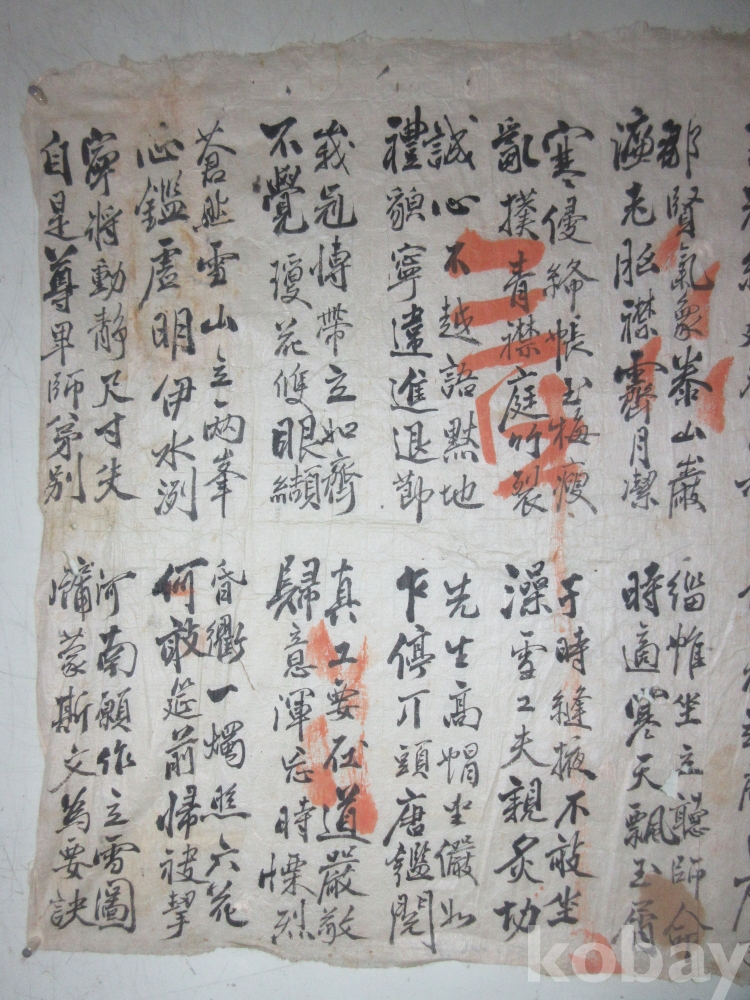 鄒賢氣象泰山巖
濂老胚襟霽月潔
寒侵絳帳玉梅瘦
亂撲青襟庭竹裂
誠心不越語默地
禮貌寧違進退節
峩冠博帶立如齊
不覺瓊花雙眼纈
蒼然雪山立兩峯
心鑑虛明伊水洌
寧將動靜尺寸失
自是尊卑師弟別
緇帷坐立聽師命
時適寒天飄玉屑
于時縫掖不敢坐
澡雪工夫親炙切
先生高帽坐儼如
乍停丌頭唐鑑閱
真工要在道嚴敬
歸意渾忘時慄烈
昏衢一燭照六花
何敢筵前歸袂挈
河南願作立雪圖
牖蒙斯文為要訣
kobay